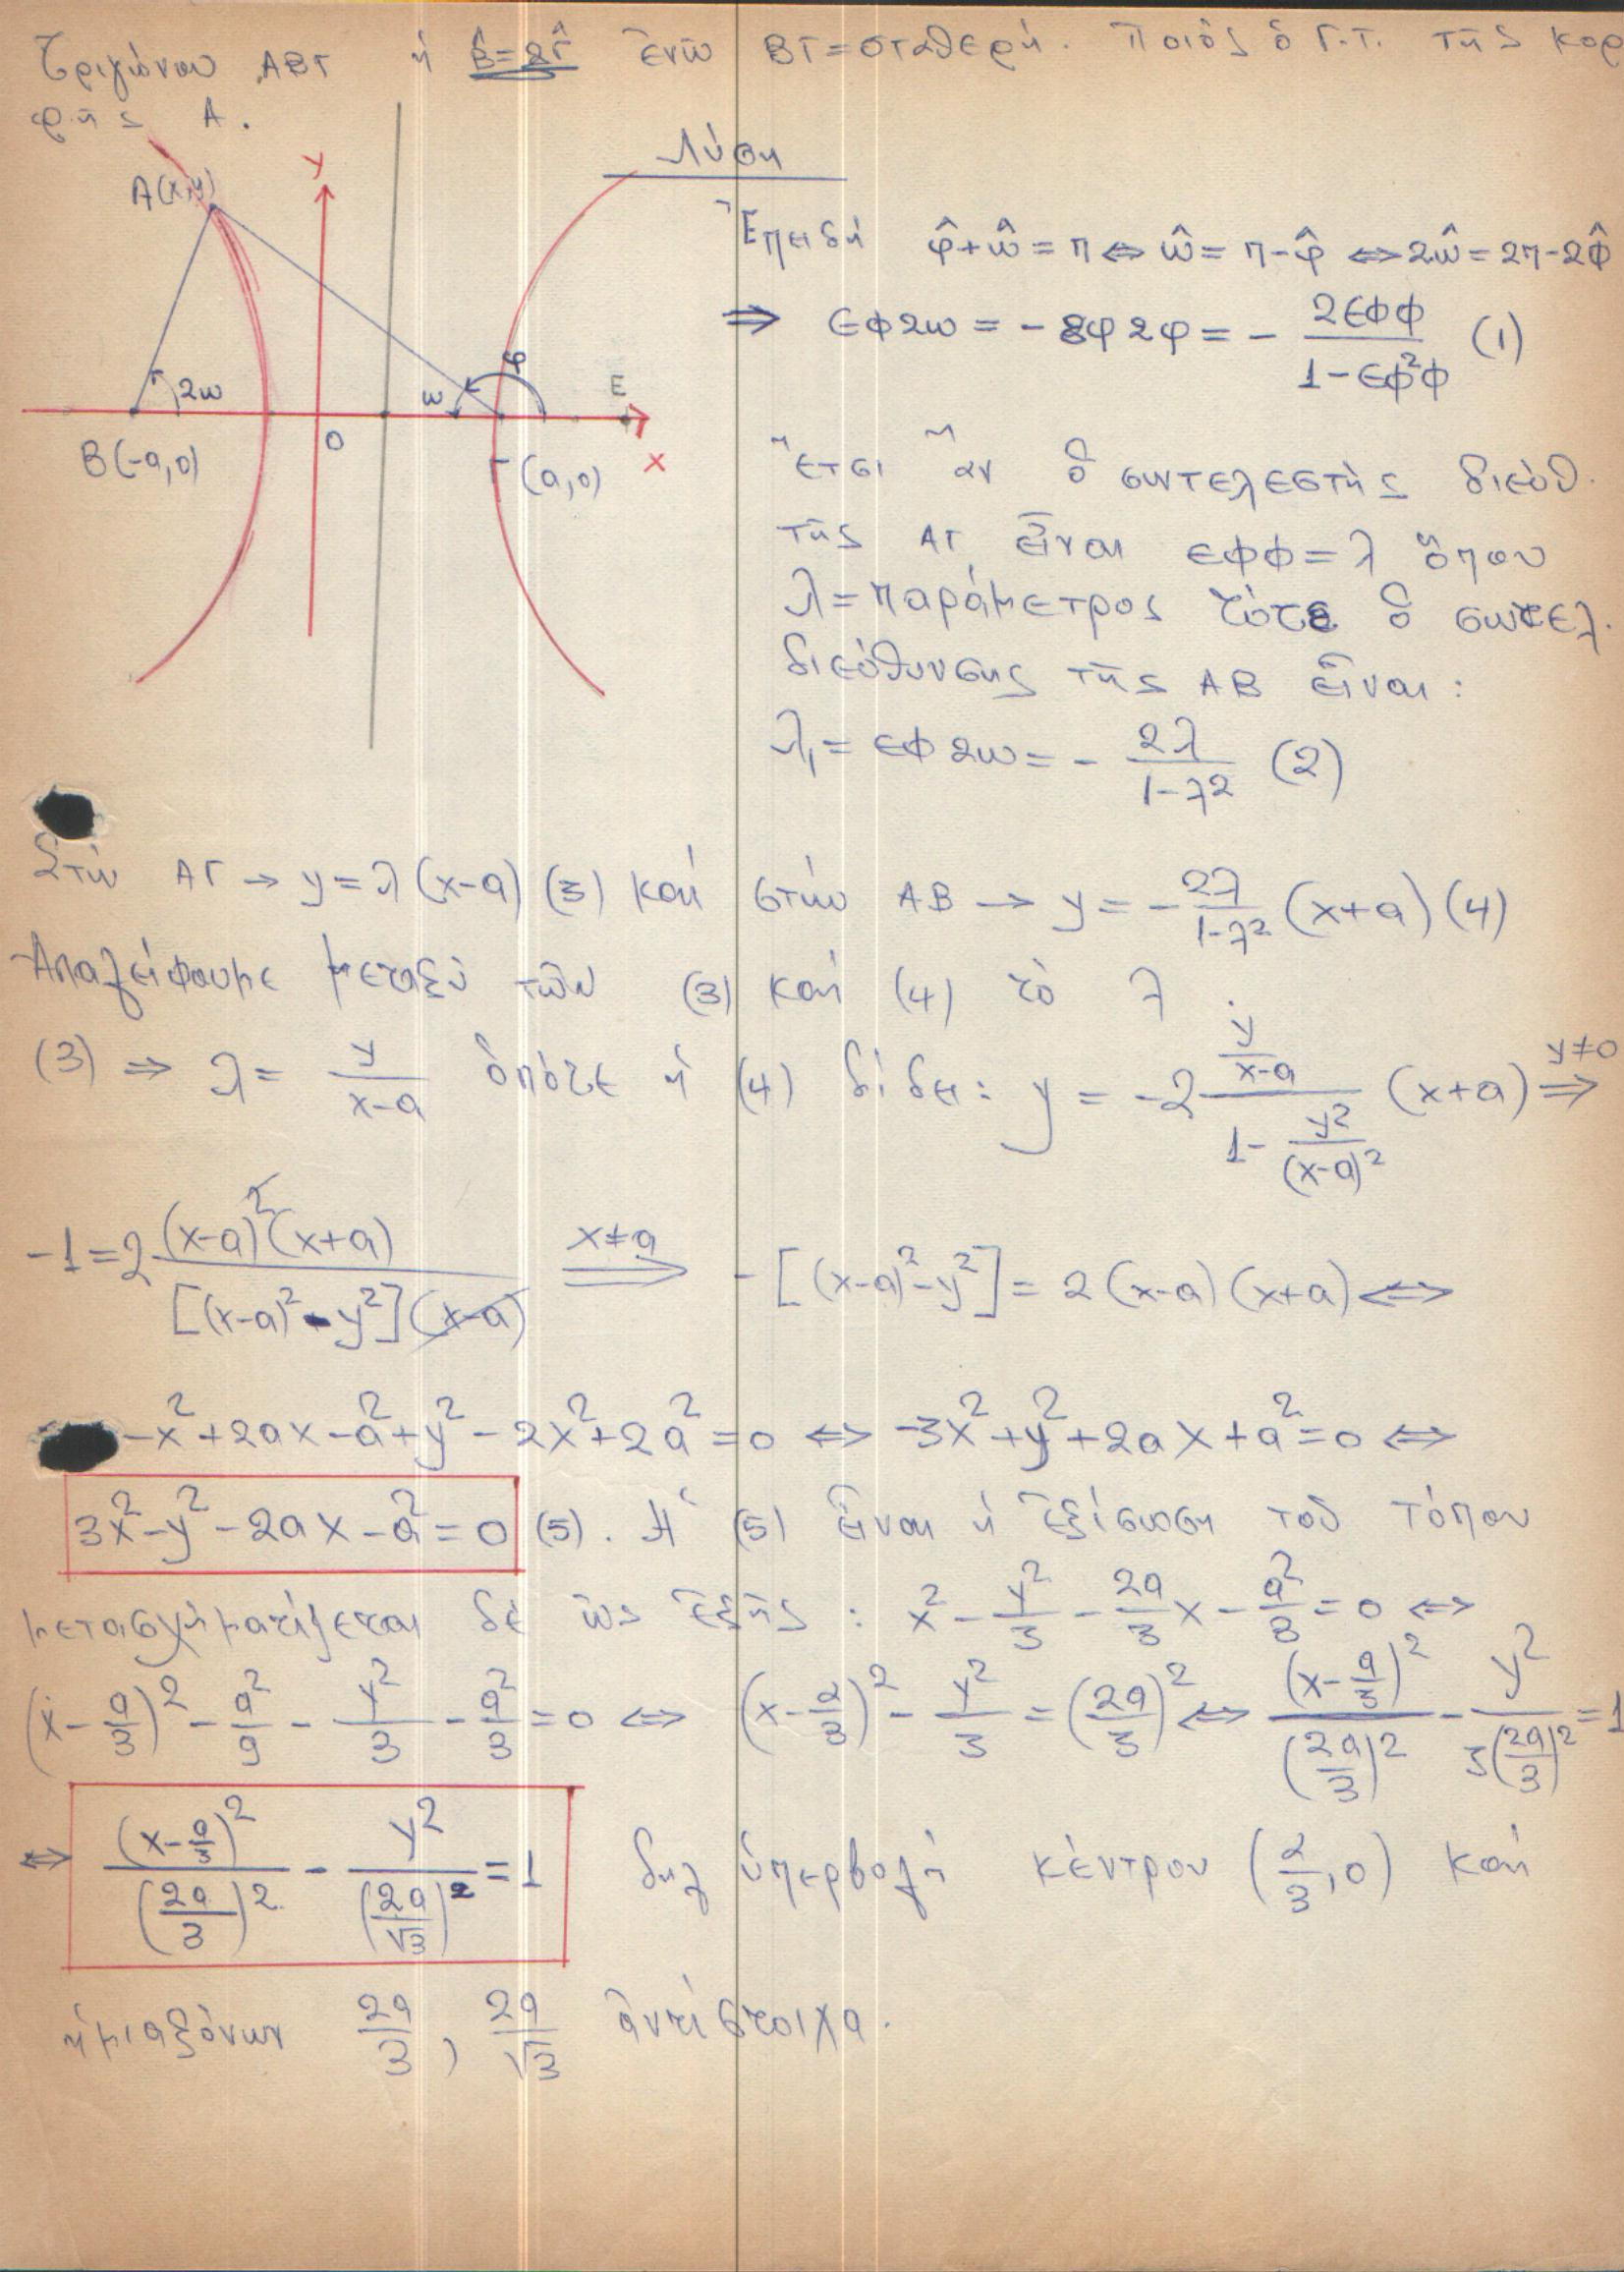 Τριγώνου ΑΒΓ ἡ B̂=2Γ̂ ἐνῶ ΒΓ=σταθερή. Ποιός ὁ Γ.Τ. τῆς κορ
φῆς Α.
Λύση
A(x,y)
y
φ
2ω
ω
E
B(-a,0)
O
Γ(a,0)
x
Ἐπειδή φ̂+ω̂=π⇔ω̂=π-φ̂ ⇔2ω̂=2π-2φ̂
⇒ εφ2ω = -εφ2φ = - 2εφφ/(1-εφ²φ) (1)
Ἔτσι ἄν ὁ συντελεστής διεύθ.
τῆς ΑΓ εἶναι εφφ=λ ὅπου
λ=παράμετρος τότε ὁ συντελ.
διεύθυνσης τῆς ΑΒ εἶναι:
λ₁=εφ2ω=- 2λ/(1-λ²) (2)
Στήν ΑΓ → y=λ(x-a) (3) καί στήν ΑΒ → y=- 2λ/(1-λ²) (x+a) (4)
Ἀπαλείφουμε μεταξύ τῶν (3) καί (4) τό λ.
(3) ⇒ λ= y/(x-a) ὁπότε ἡ (4) δίδει: y = -2 (y/(x-a))/(1- y²/(x-a)²) (x+a) ⇒ y≠0
-1=2 (x-a)²(x+a)/([(x-a)²-y²](x-a)) ⇒ x≠a -[(x-a)²-y²]=2(x-a)(x+a)⇔
-x²+2ax-a²+y²-2x²+2a²=0 ⇔ -3x²+y²+2ax+a²=0 ⇔
3x²-y²-2ax-a²=0 (5). Ἡ (5) εἶναι ἡ ἐξίσωση τοῦ τόπου
μετασχηματίζεται δέ ὡς ἑξῆς: x² - y²/3 - 2a/3 x - a²/3 = 0 ⇔
(x - a/3)² - a²/9 - y²/3 - a²/3 = 0 ⇔ (x - a/3)² - y²/3 = (2a/3)² ⇔ (x - a/3)²/(2a/3)² - y²/3(2a/3)² = 1
⇔ (x - a/3)²/(2a/3)² - y²/(2a/√3)² = 1 δηλ ὑπερβολή κέντρου (2/3,0) καί
ἡμιαξόνων 2a/3, 2a/√3 ἀντίστοιχα.